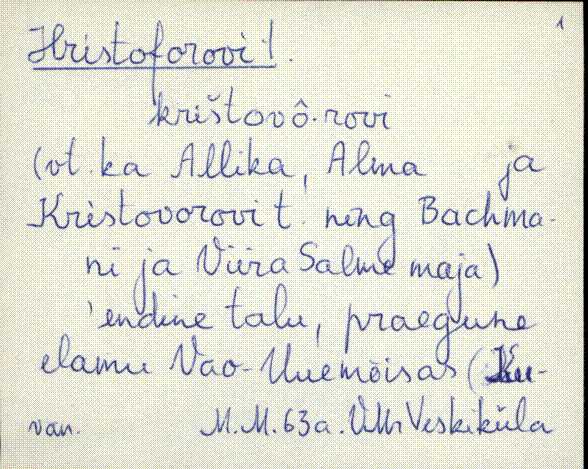 1
Hristoforovi t.
krištovô·rovi
(vt. ka Allika, Alma ja
Kristovorovi t. ning Bachma-
ni ja Viira Salme maja)
'endine talu, praegune
elamu Vao-Uuemõisas (Ku-
van. M.M. 63a. VMr Veskiküla